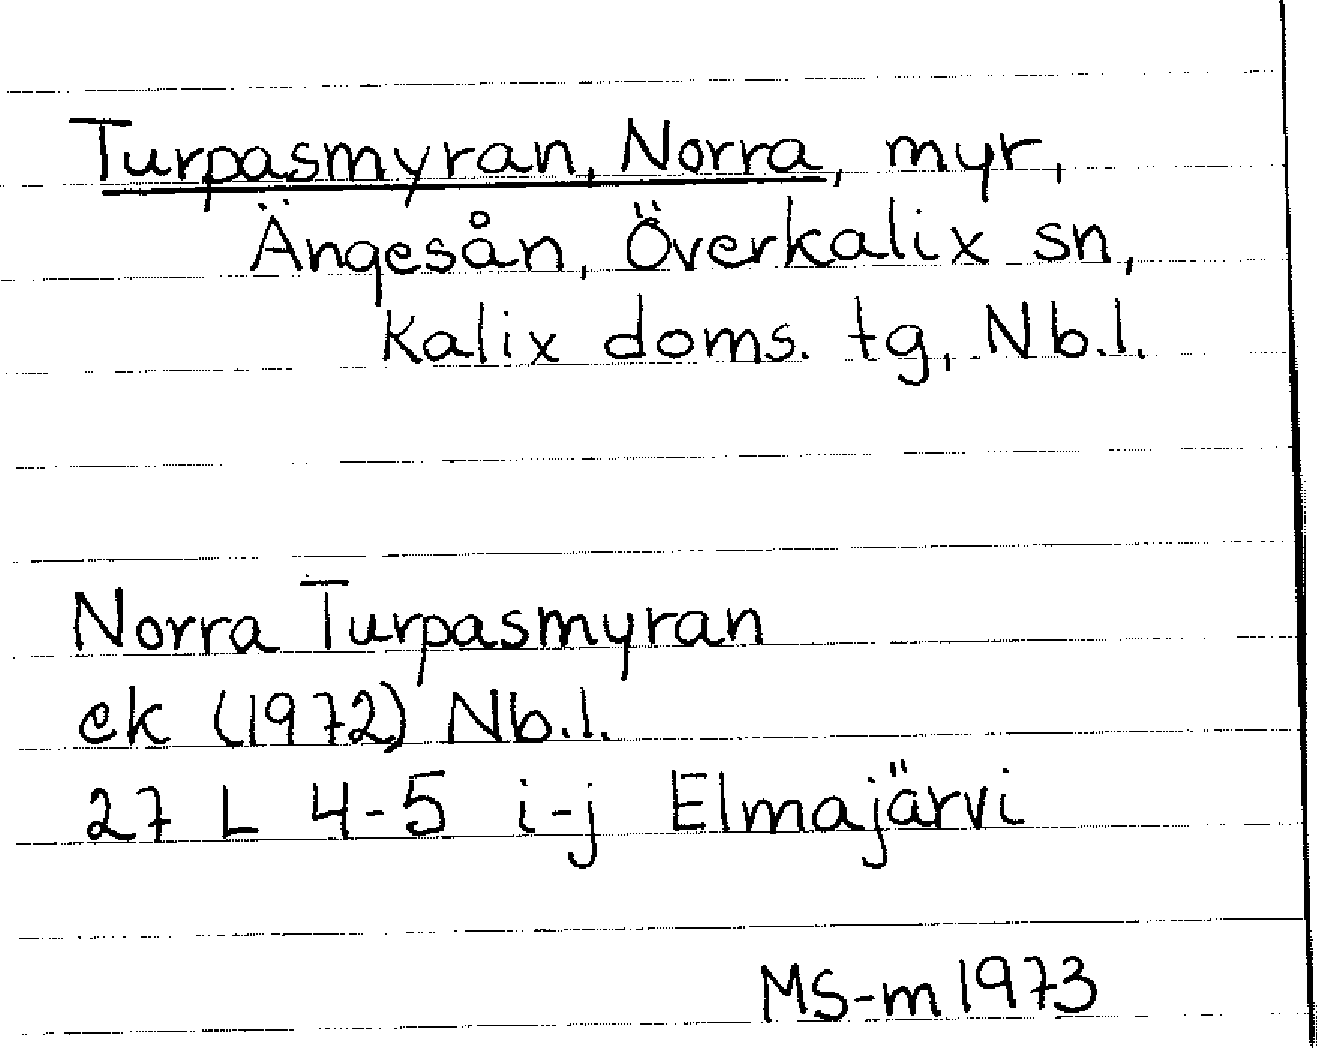 Turpasmyran, Norra, myr,
Ängesån, Överkalix sn,
Kalix doms. tg, Nb.l.
Norra Turpasmyran
ek (1972) Nb.l.
27 L 4-5 i-j Elmajärvi
MS-m 1973